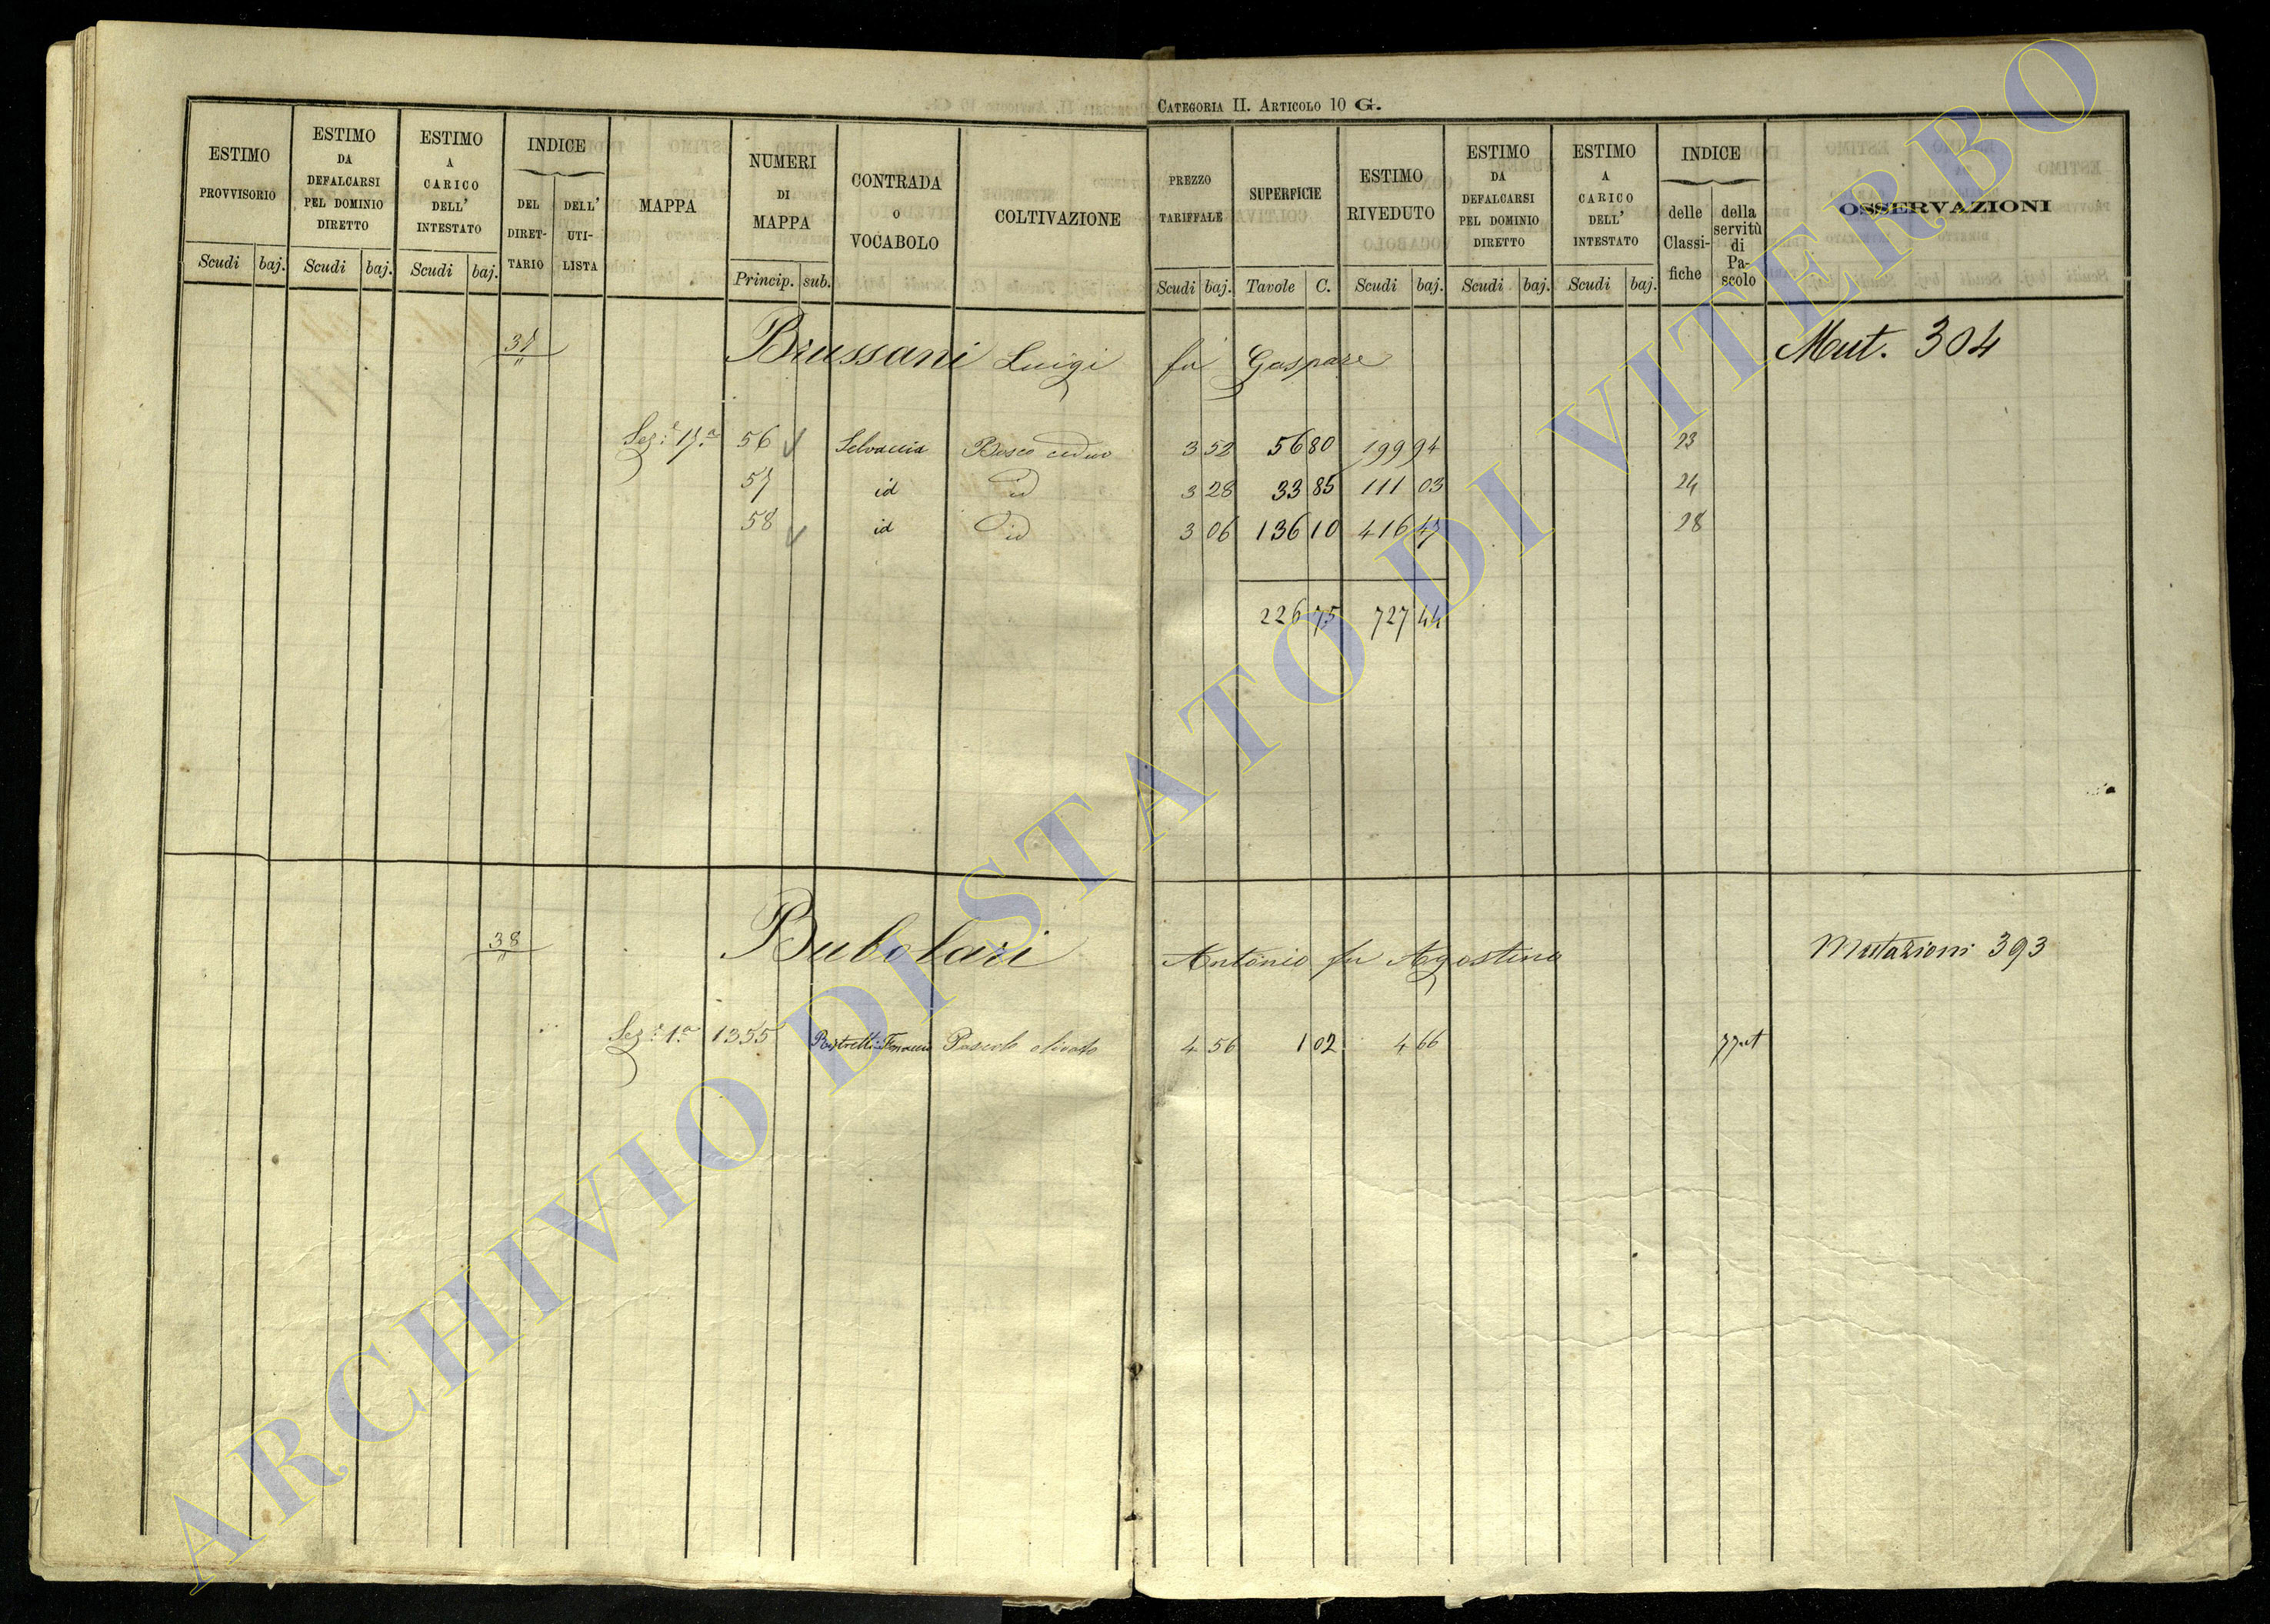 CATEGORIA II. ARTICOLO 10 G.
ESTIMO PROVVISORIO Scudi baj.
ESTIMO DA DEFALCARSI PEL DOMINIO DIRETTO Scudi baj.
ESTIMO A CARICO DELL' INTESTATO Scudi baj.
INDICE DEL DIRET-TARIO DELL' UTI-LISTA
MAPPA
NUMERI DI MAPPA Princip. sub.
CONTRADA O VOCABOLO
COLTIVAZIONE
PREZZO TARIFFALE Scudi baj.
SUPERFICIE Tavole C.
ESTIMO RIVEDUTO Scudi baj.
ESTIMO DA DEFALCARSI PEL DOMINIO DIRETTO Scudi baj.
ESTIMO A CARICO DELL' INTESTATO Scudi baj.
INDICE delle Classi-fiche della servitù di Pa-scolo
OSSERVAZIONI
37 Brussani Luigi fu Gaspare Mut. 304
Sez:e 17.a 56 Selvaccia Bosco ceduo 3 52 56 80 199 94 23
57 id id 3 28 33 85 111 03 24
58 id id 3 06 136 10 416 47 28
226 75 727 44
38 Bubolari Antonio fu Agostino Mutazioni 393
Sez:e 1a 1355 Pascolo olivato 4 56 1 02 4 66
ARCHIVIO DI STATO DI VITERBO